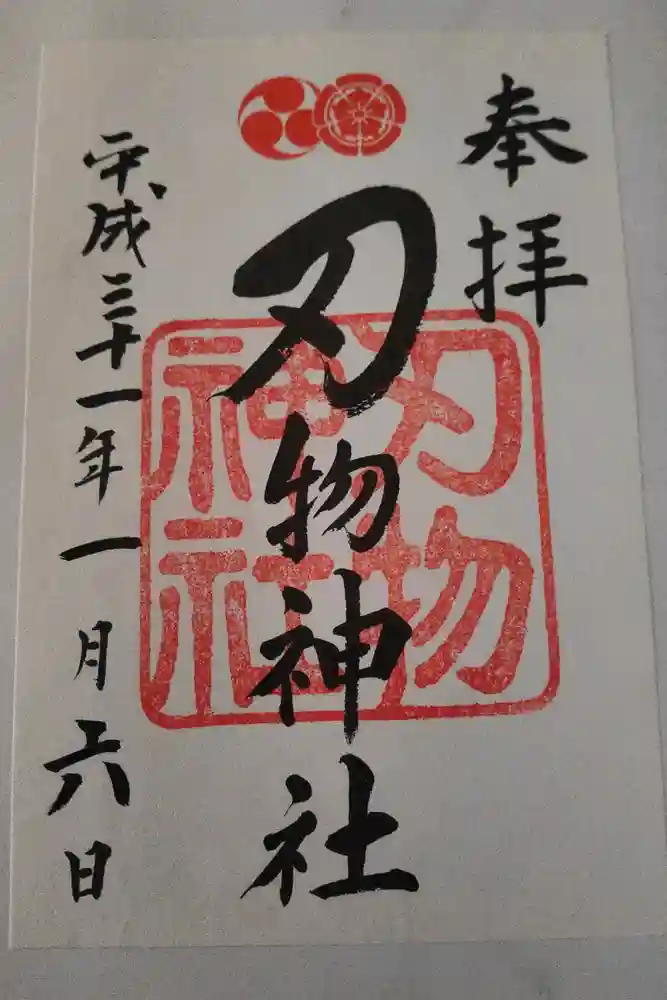 奉拝
刃物神社
平成三十一年一月六日
刃物
神社